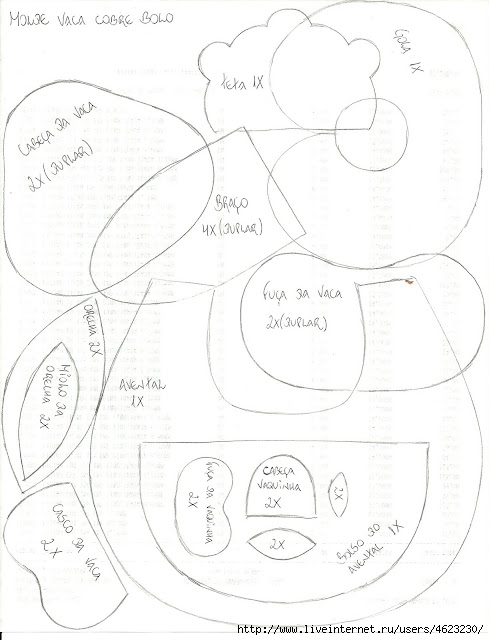 MOLDE VACA COBRE BOLO
TETA 1X
GOLA 1X
CABEÇA DA VACA
2X (DUPLAR)
BRAÇO
4X (DUPLAR)
FUÇA DA VACA
2X (DUPLAR)
ORELHA 2X
MIOLO DA
ORELHA 2X
AVENTAL
1X
FUÇA DA VAQUINHA
2X
CABEÇA
VAQUINHA
2X
2X
2X
BOLSO DO
AVENTAL 1X
CASCO DA VACA
2X
http://www.liveinternet.ru/users/4623230/